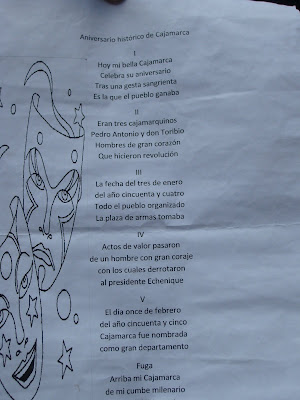 Aniversario histórico de Cajamarca
I
Hoy mi bella Cajamarca
Celebra su aniversario
Tras una gesta sangrienta
Es la que el pueblo ganaba
II
Eran tres cajamarquinos
Pedro Antonio y don Toribio
Hombres de gran corazón
Que hicieron revolución
III
La fecha del tres de enero
del año cincuenta y cuatro
Todo el pueblo organizado
La plaza de armas tomaba
IV
Actos de valor pasaron
de un hombre con gran coraje
con los cuales derrotaron
al presidente Echenique
V
El día once de febrero
del año cincuenta y cinco
Cajamarca fue nombrada
como gran departamento
Fuga
Arriba mi Cajamarca
de mi cumbe milenario